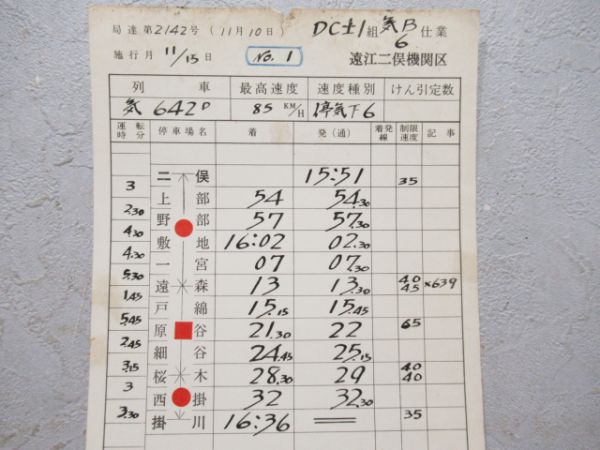 局達第2142号 (11月10日) DC±1組 気B6 仕業
施行月 11/15日 No.1 遠江二俣機関区
列車 最高速度 速度種別 けん引定数
気 642D 85 KM/H 停気下6
運転時分 停車場名 着 発(通) 着発線 制限速度 記事
二俣 15:51 35
3
上部 54 54.30
2.30
野部 57 57.30
4.30
敷地 16:02 02.30
4.30
一宮 07 07.30
5.30
遠森 13 13.30 40 45 ×639
1.45
戸綿 15.15 15.45
5.45
原谷 21.30 22 65
2.45
細谷 24.45 25.15
3.15
桜木 28.30 29 40 40
3
西掛 32 32.30
3.30
掛川 16:36 35